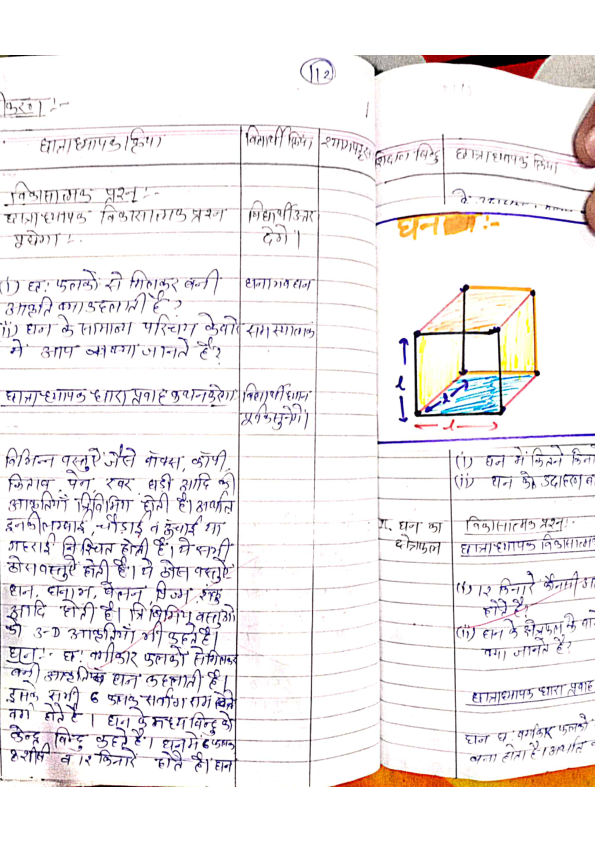 112
करण :-
छात्राध्यापक क्रिया
विद्यार्थी क्रिया
श्यामपट्ट
विकासात्मक प्रश्न :-
छात्राध्यापक विकासात्मक प्रश्न
पूछेगा :-
विद्यार्थी उत्तर
देंगे।
(i) छः फलकों से मिलकर बनी
आकृति क्या कहलाती है?
घनाभ व घन
(ii) घन के सामान्य परिचय के बारे
में आप क्या क्या जानते है?
समस्यात्मक
छात्राध्यापक धारा प्रवाह कथन करेगा
विद्यार्थी ध्यान
पूर्वक सुनेगे।
विभिन्न वस्तुएँ जैसे बॉक्स, कॉपी,
किताब, पेन, रबर घड़ी आदि की
आकृतियाँ त्रिविमिय होती है। अर्थात
इनकी लम्बाई, चौड़ाई व ऊंचाई या
गहराई निश्चित होती है। ये सभी
ठोस वस्तुएँ होती है। ये ठोस वस्तुएँ
घन, घनाभ, बेलन प्रिज्म, शंकु
आदि होती है। त्रिविमिय वस्तुओं
को 3-D आकृतियाँ भी कहते है।
घन:- छः वर्गाकार फलको से मिलकर
बनी आकृति घन कहलाती है।
इसके सभी 6 फलक सर्वांगसम
वर्ग होते है। घन के मध्य बिन्दु को
केन्द्र बिन्दु कहते है। घन में 6 फलक
8 शीर्ष व 12 किनारे होते है। घन
शिक्षण बिन्दु
छात्राध्यापक क्रिया
घन :-
l
l
l
(i) घन में कितने किना
(ii) घन को उदाहरण
घन का
क्षेत्रफल
विकासात्मक प्रश्न:-
छात्राध्यापक विकासात्म
(i) 12 किनारे कौनसी आ
होते है?
(ii) घन के क्षेत्रफल के बारे
क्या जानते है?
छात्राध्यापक धारा प्रवाह
घन छः वर्गाकार फलको
बना होता है। अर्थात